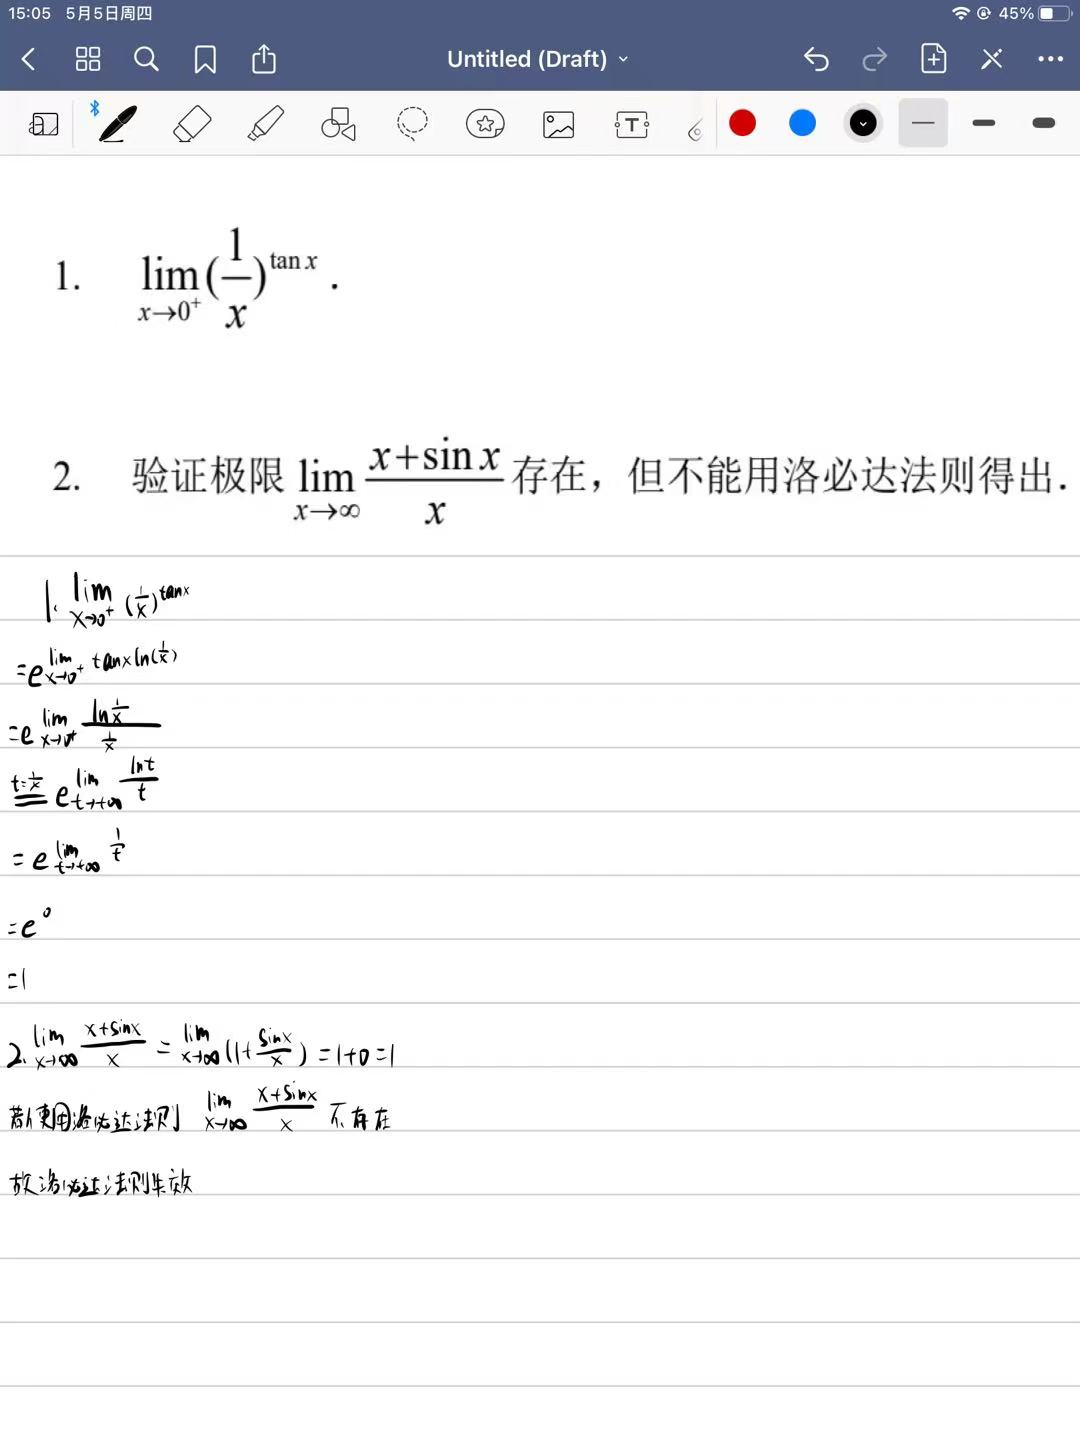 15:05 5月5日周四 45%
Untitled (Draft)
T
1. lim x→0⁺ (1/x)^tan x .
2. 验证极限 lim x→∞ (x+sin x)/x 存在，但不能用洛必达法则得出.
1. lim x→0⁺ (1/x)^tanx
=e^lim x→0⁺ tanx ln(1/x)
=e^lim x→0⁺ (ln 1/x)/(1/x)
t=1/x == e^lim t→+∞ lnt/t
=e^lim t→+∞ 1/t
=e^0
=1
2. lim x→∞ (x+sinx)/x = lim x→∞ (1+ sinx/x) =1+0=1
若使用洛必达法则 lim x→∞ (x+sinx)/x 不存在
故洛必达法则失效